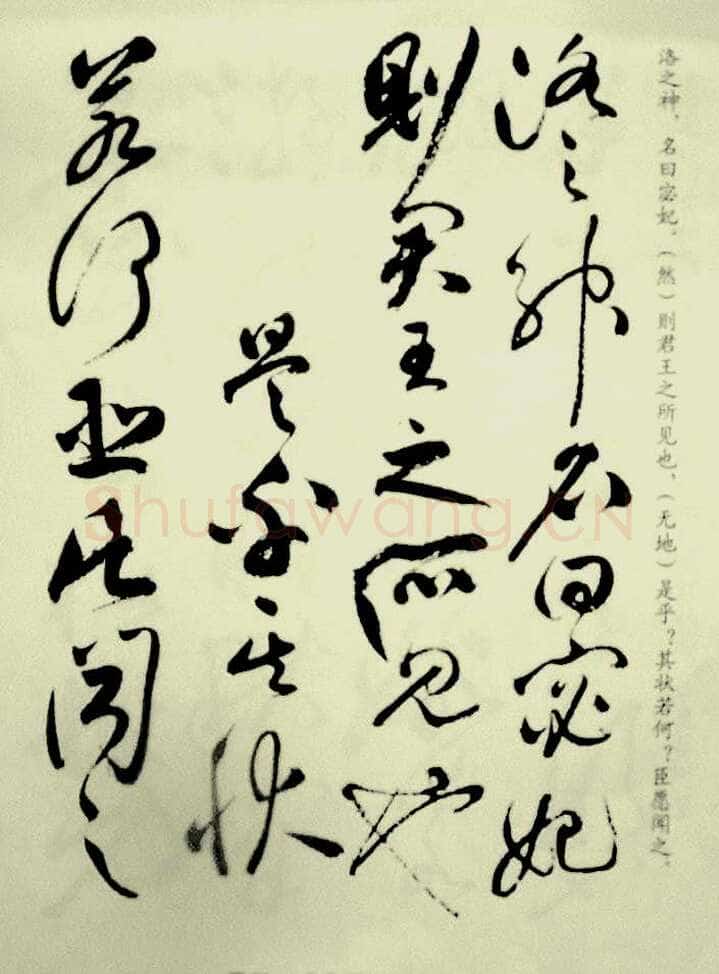 洛之神，名曰宓妃。（然）则君王之所见也，（无地）是乎？其状若何？臣愿闻之。
洛之神名曰宓妃
则君王之所见也
是乎其状
若何臣愿闻之
Shufawang.CN